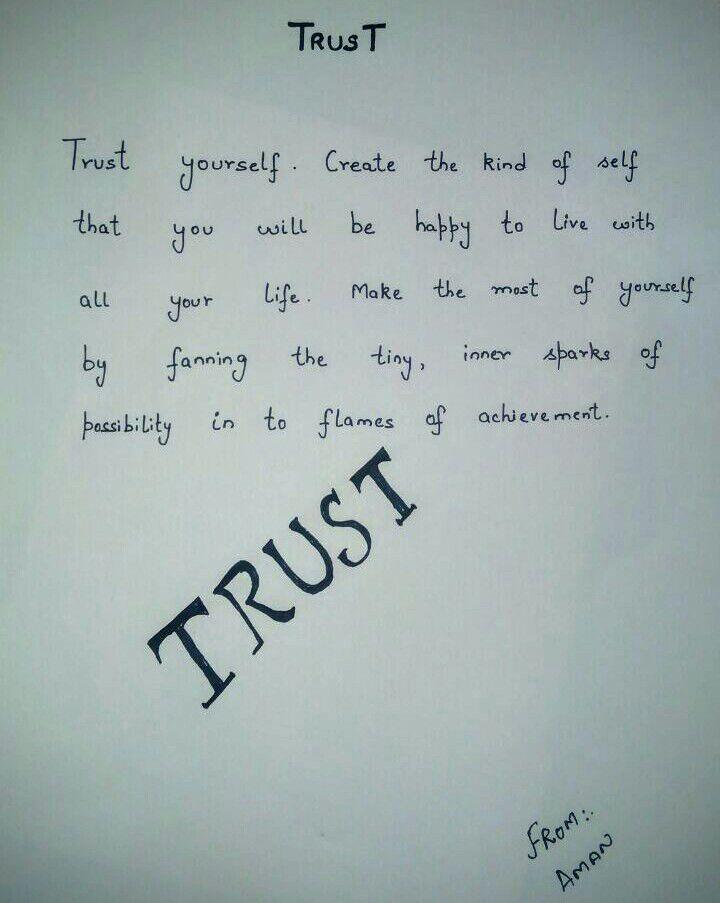 TRUST
Trust yourself. Create the kind of self
that you will be happy to live with
all your life. Make the most of yourself
by fanning the tiny, inner sparks of
possibility in to flames of achievement.
TRUST
FROM:.
AMAN